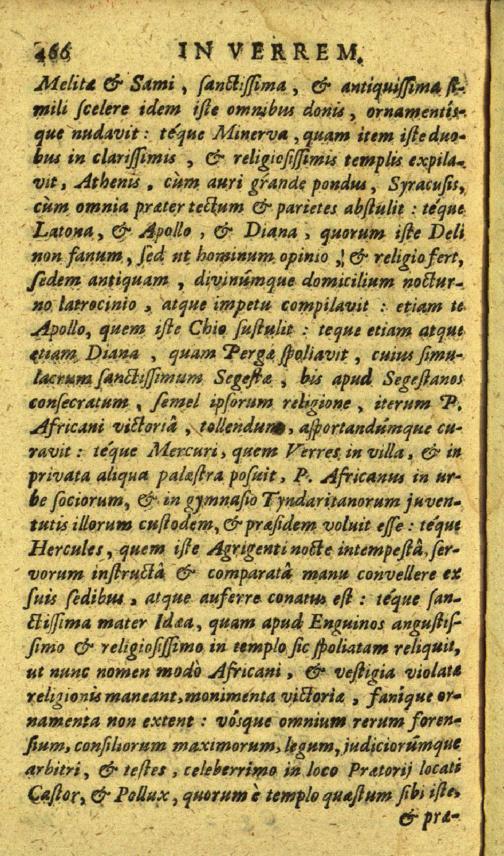 466 IN VERREM.
Melitæ & Sami, sanctissima, & antiquissima si-
mili scelere idem iste omnibus donis, ornamentís-
que nudavit: téque Minerva, quam item iste duo-
bus in clarissimis, & religiosissimis templis expila-
vit, Athenis, cùm auri grande pondus, Syracusis,
cùm omnia præter tectum & parietes abstulit: téque
Latona, & Apollo, & Diana, quorum iste Deli
non fanum, sed ut hominum opinio, & religio fert,
sedem antiquam, divinúmque domicilium noctur-
no latrocinio, atque impetu compilavit: etiam te
Apollo, quem iste Chio sustulit: teque etiam atque
etiam Diana, quam Pergæ spoliavit, cuius simu-
lacrum sanctissimum Segestæ, bis apud Segestanos
consecratum, semel ipsorum religione, iterum P.
Africani victoriâ, tollendum, asportandúmque cu-
ravit: téque Mercuri, quem Verres in villa, & in
privata aliqua palæstra posuit, P. Africanus in ur-
be sociorum, & in gymnasio Tyndaritanorum juven-
tutis illorum custodem, & præsidem voluit esse: téque
Hercules, quem iste Agrigenti nocte intempestâ, ser-
vorum instructâ & comparatâ manu convellere ex
suis sedibus, atque auferre conatus est: téque san-
ctissima mater Idæa, quam apud Enguinos angustis-
simo & religiosissimo in templo sic spoliatam reliquit,
ut nunc nomen modò Africani, & vestigia violatæ
religionis maneant, monimenta victoriæ, faníque or-
namenta non extent: vósque omnium rerum foren-
sium, consiliorum maximorum, legum, judiciorúmque
arbitri, & testes, celeberrimo in loco Prætorij locati
Castor, & Pollux, quorum è templo quæstum sibi iste,
& præ-